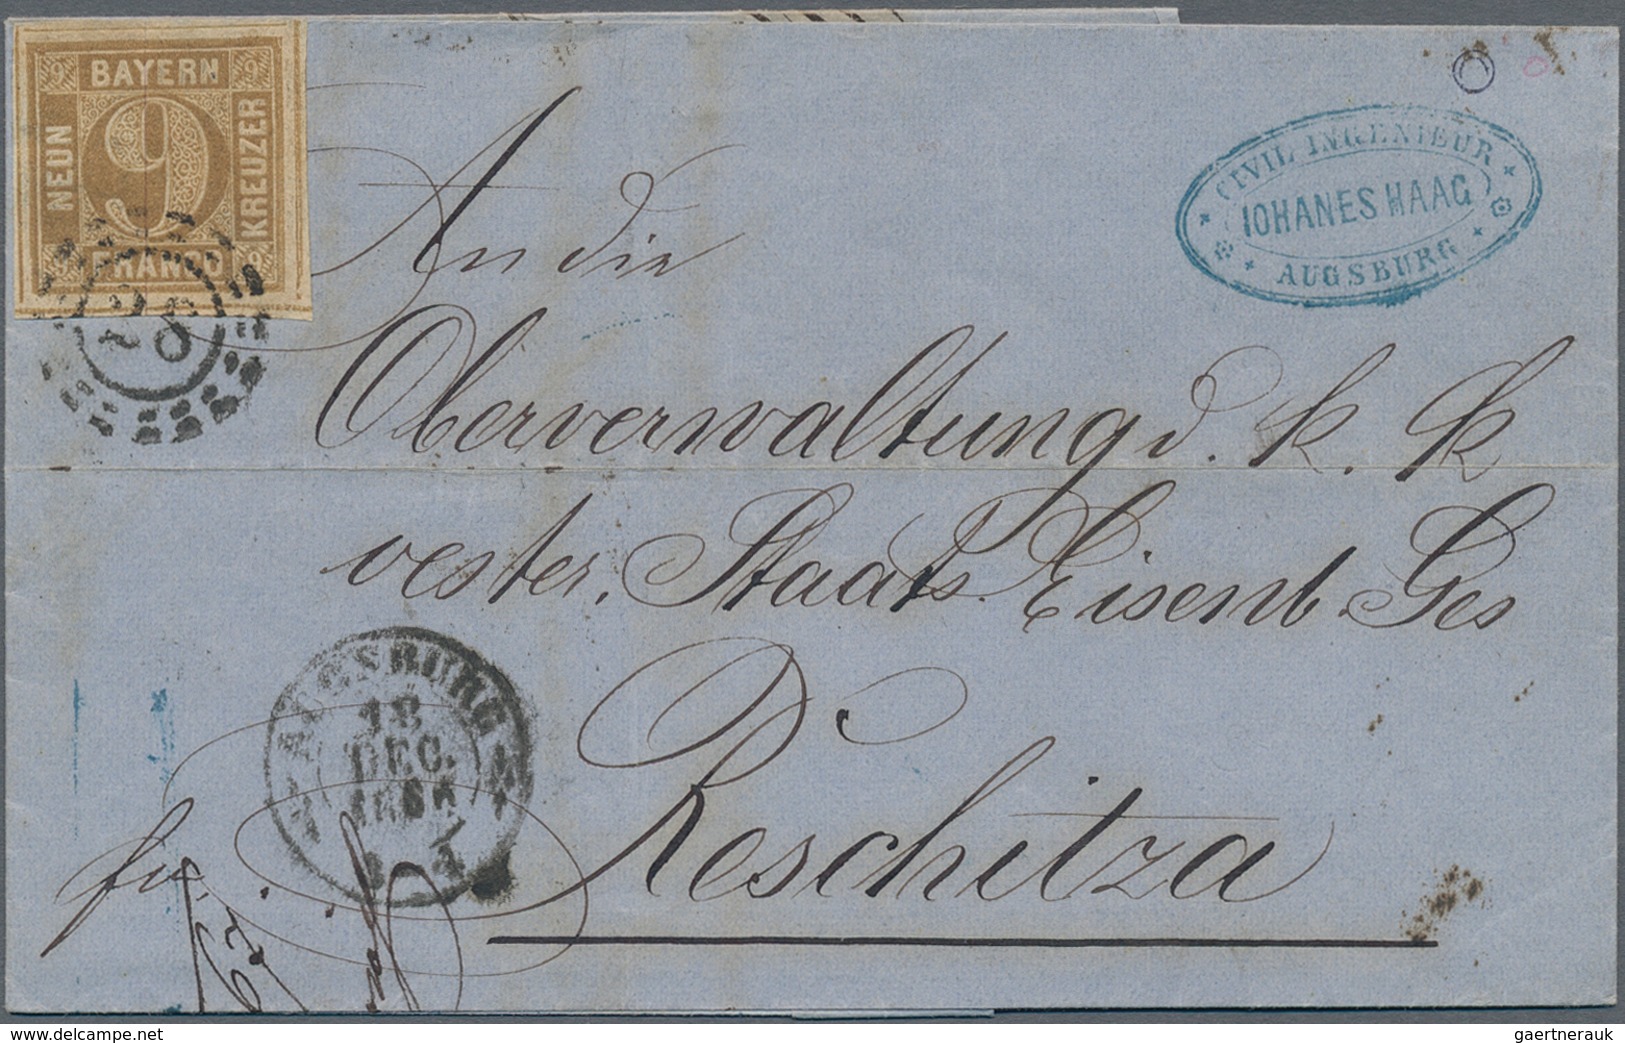 9 9
BAYERN
NEUN
9
KREUZER
FRANCO
9 9
CIVIL INGENIEUR
IOHANES HAAG
AUGSBURG
An die
Oberverwaltung d. k. k
oester. Staats. Eisenb. Ges
Reschitza
AUGSBURG
DEC.
fr.
gaertnerauk